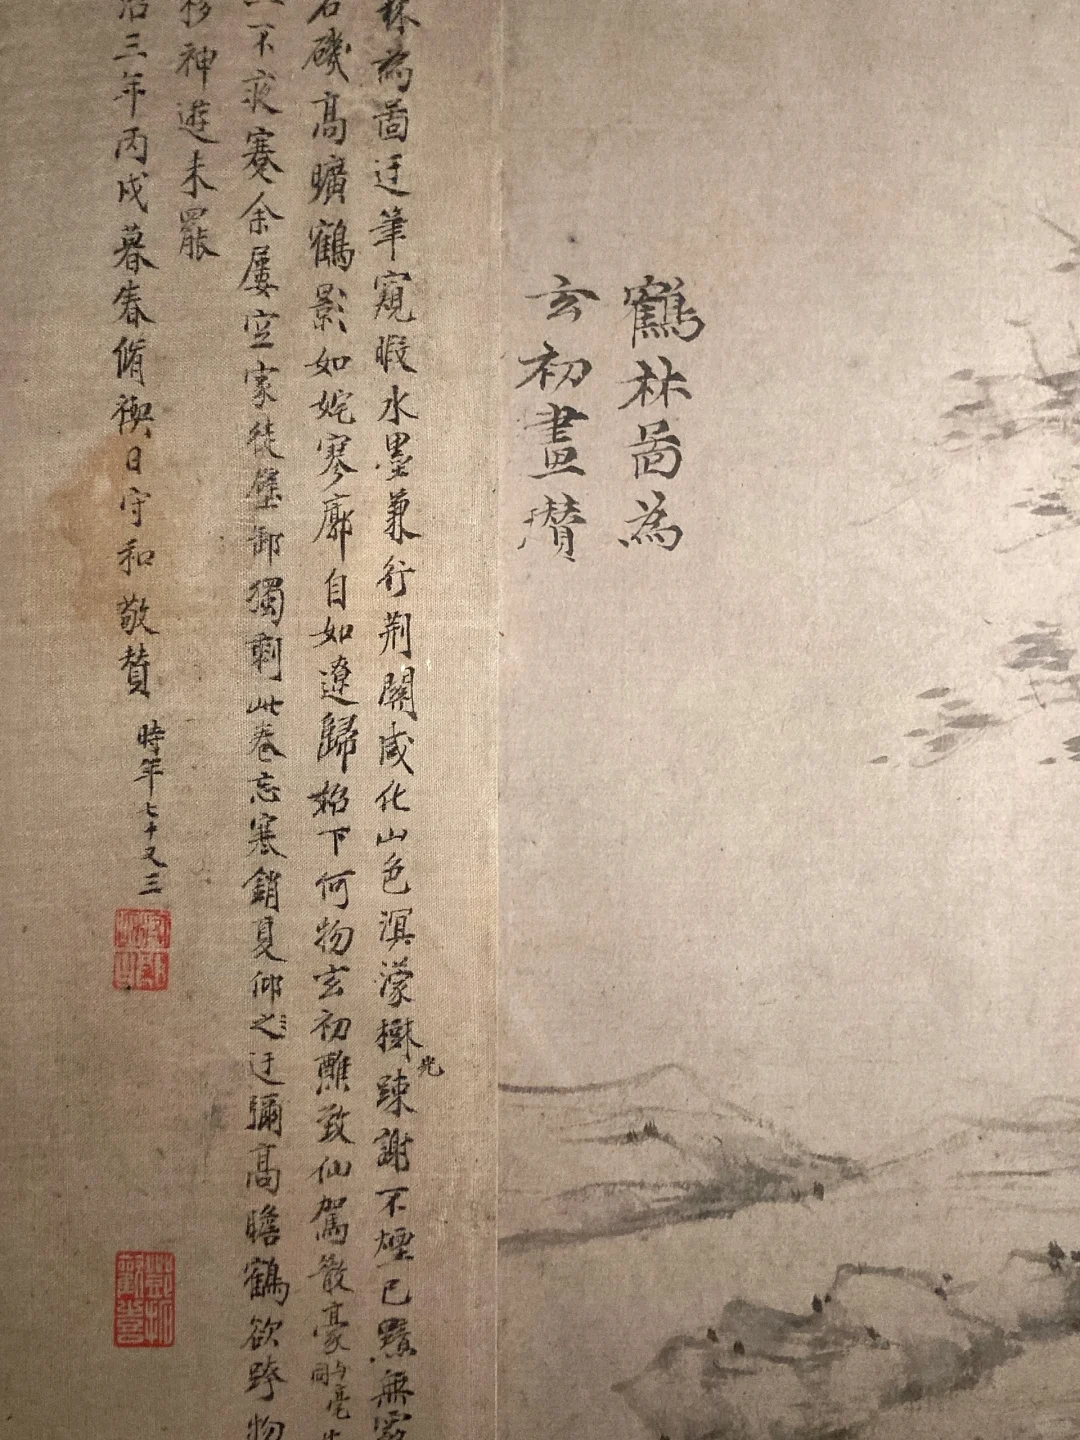 鶴林啚為
玄初畫瓚
林為啚迂筆窺暇水墨兼行荆關咸化山色溟濛樹踈謝不煙已黯無
光
石磯高曠鶴影如姹寥廓自如遼歸始下何物玄初醮致仙駕散豪
與毫同
不求賽余屢空家徒壁卸獨剩此卷忘寒銷夏仰之迂彌高瞻鶴欲跨物
移神遊未罷
治三年丙戌暮春脩禊日守和敬贊
時年七十又三